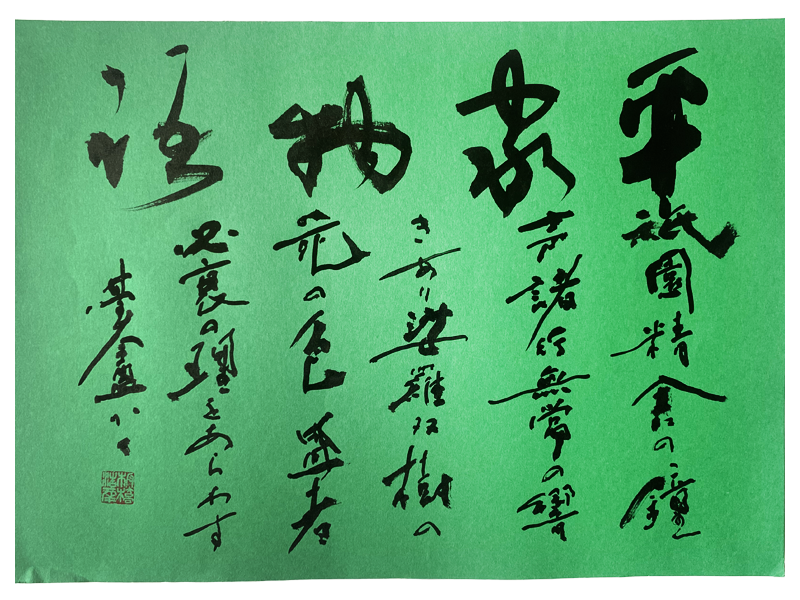 平家物語
祇園精舎の鐘
声諸行無常の響
きあり娑羅双樹の
花の色盛者
必衰の理をあらわす